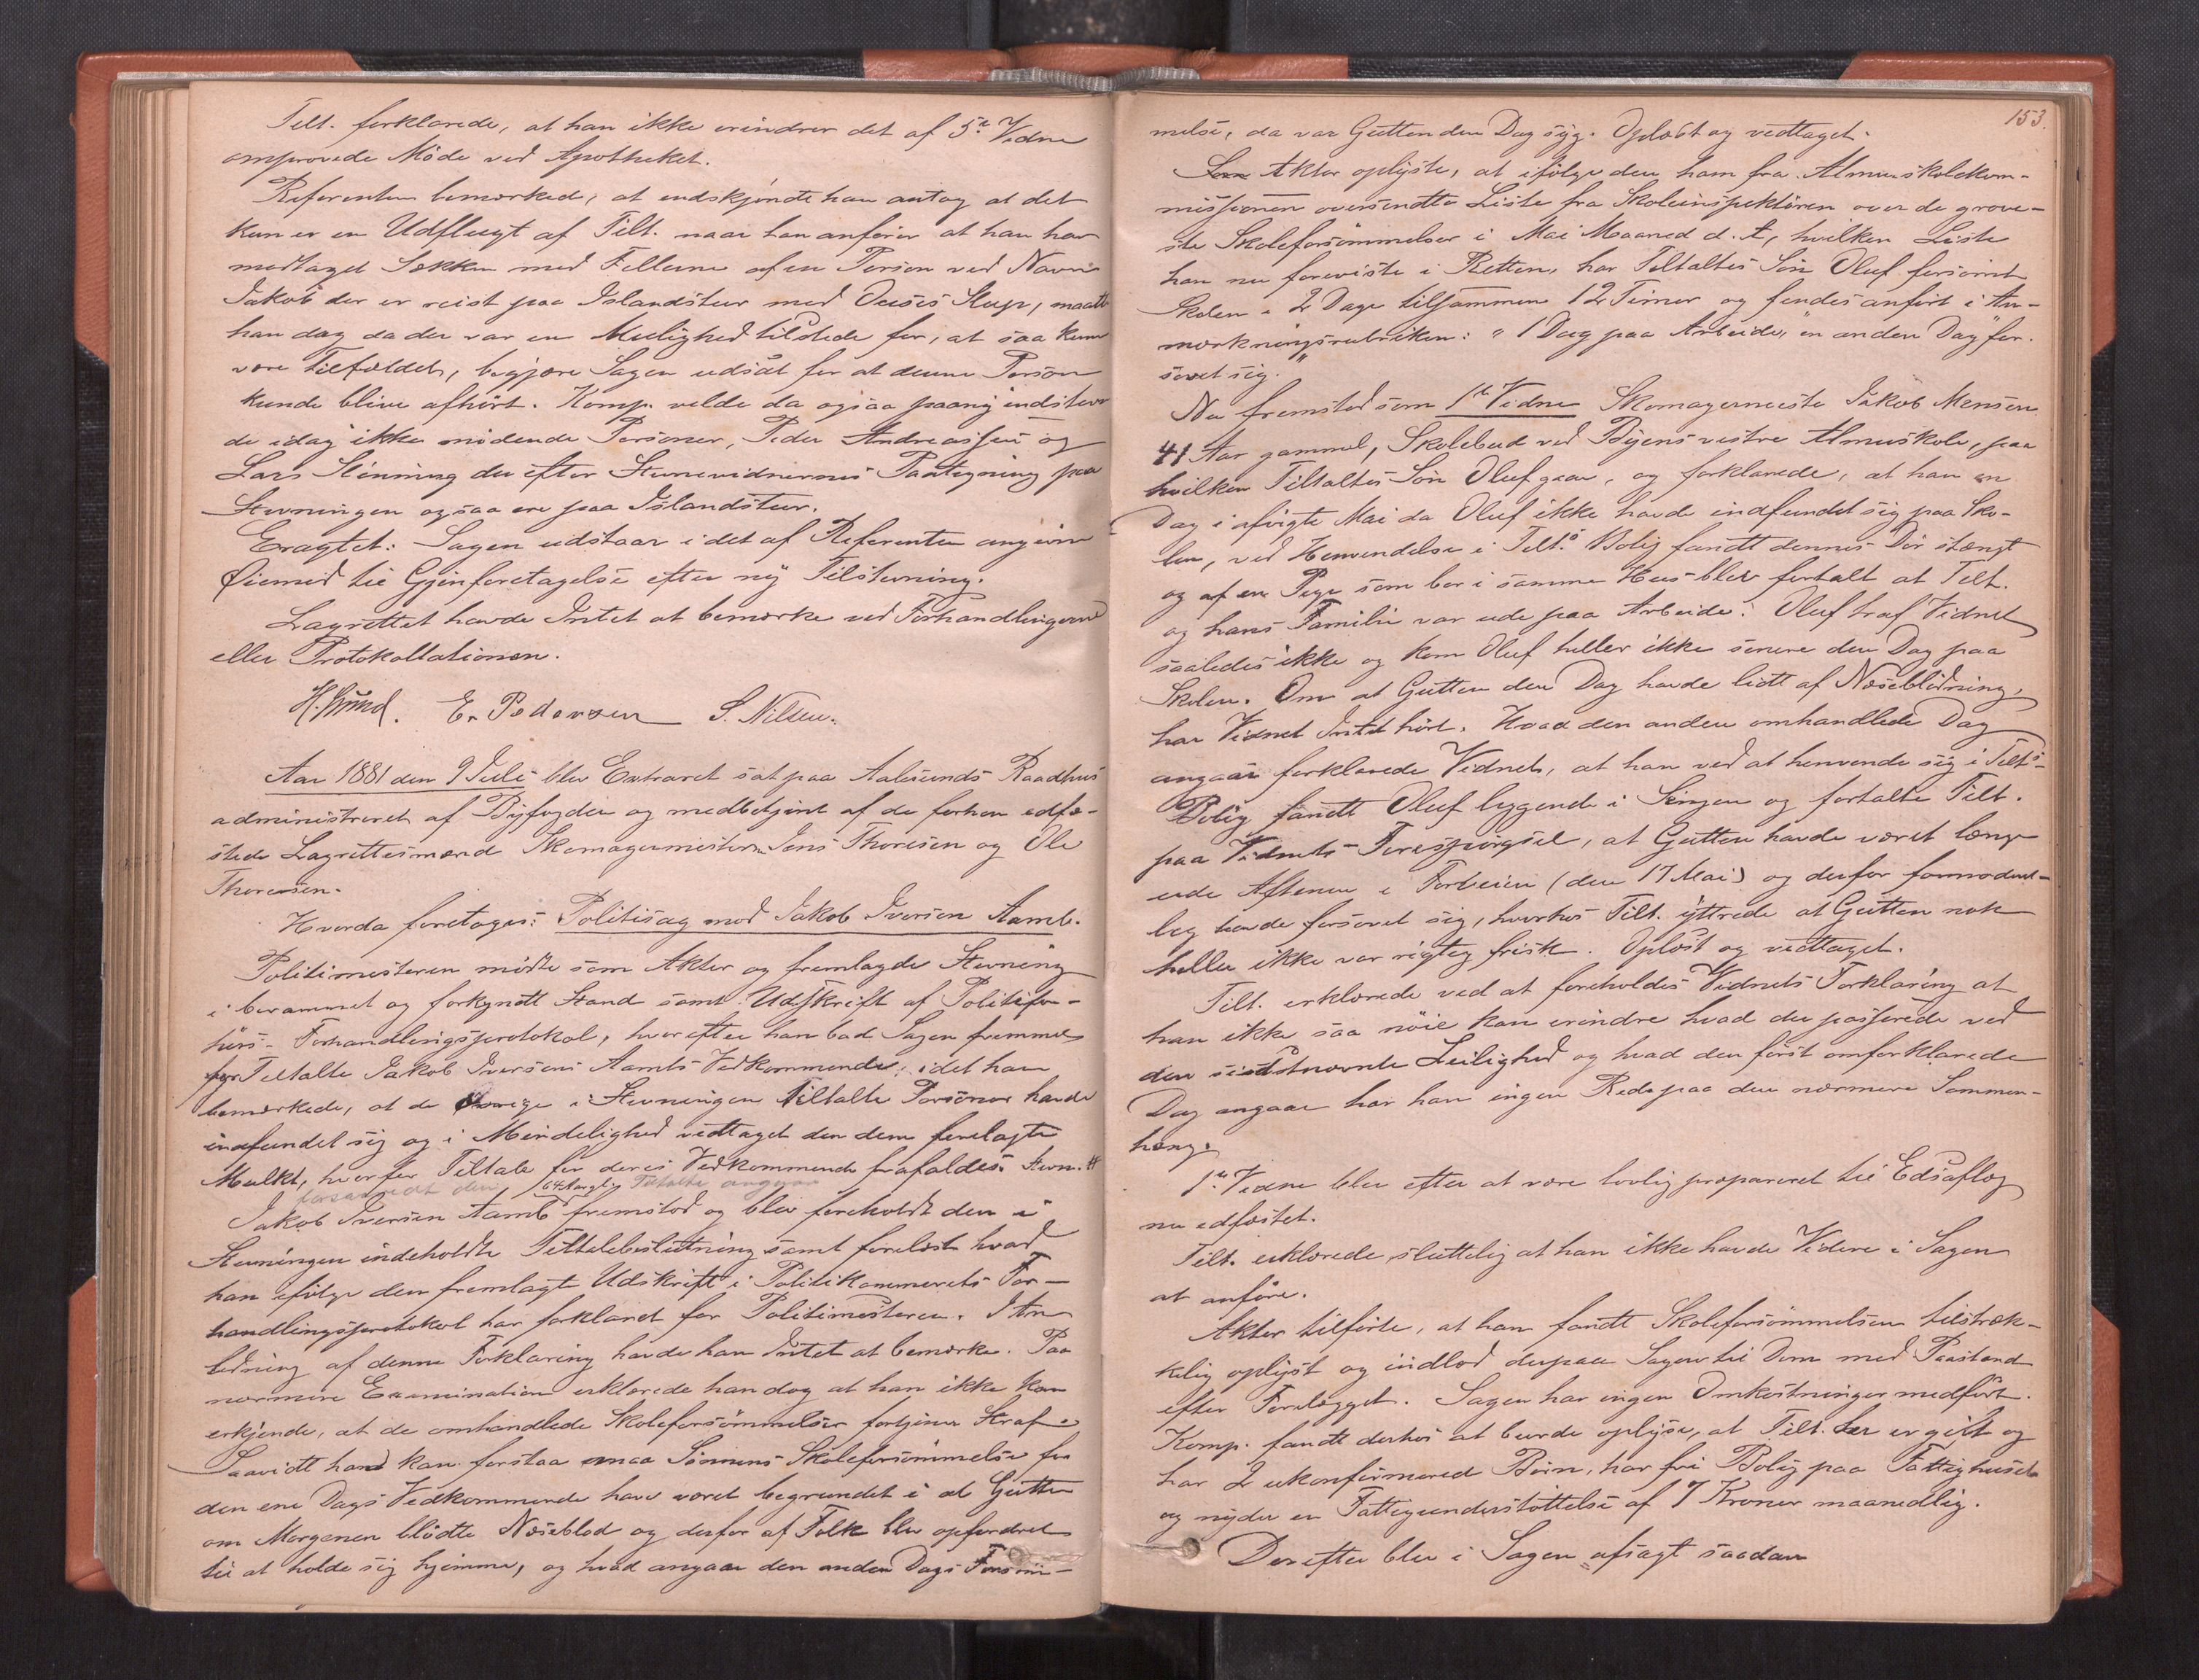 Tilt. forklarede, at han ikke erindrer det af 5te Vidne
omprovede Möde ved Apotheket.
Referenten bemærkede, at endskjöndt han antog at det
kun er en Udflugt af Tilt. naar han anförer at han har
modtaget Sækken med Fellerne af en Person ved Navn
Jakob der er reist paa Islandstur med Slup, maatte
han dog da der var en Mulighed tilstede for, at saa kunde
være Tilfældet, begjære Sagen udsat for at denne Person
kunde blive afhört. Komp. vilde da ogsaa paany indstevne
de idag ikke mödende Personer, Peder Andreassen og
Lars der efter Stevnevidnernes Paategning paa
Stevningen ogsaa ere paa Islandstur.
Eragtet: Sagen udstaar i det af Referenten angivne
Öiemed til Gjenforetagelse efter ny Tilstevning.
Lagrettet havde Intet at bemærke ved Forhandlingerne
eller Protokollationen.
E. Pedersen S. Nilsen.
Aar 1881 den 9 Juli blev Extraret sat paa Aalesunds Raadhus
administreret af Byfogden og medbetjent af de forhen edfæ-
stede Lagrettesmænd Skomagermestern Jens Thoresen og Ole
Thoresen.
Hvorda foretoges: Politisag mod Jakob Iversen Aamb.
Politimesteren mödte som Aktor og fremlagde Stevning
i berammet og forkyndt Stand samt Udskrift af Politifor-
hörs- Forhandlingsprotokol, hvorefter han bad Sagen fremmet
for Tiltalte Jakob Iversens Aambs Vedkommende, idet han
bemærkede, at de övrige i Stevningen tiltalte Personer havde
indfundet sig og i Mindelighed vedtaget den dem forelagte
Mulkt, hvorfor Tiltale for deres Vedkommende frafaldes. #
Tiltalte angaar
Jakob Iversen Aamb fremstod og blev foreholdt den i
Stevningen indeholdte Tiltalebeslutning samt forelæst hvad
han ifölge den fremlagte Udskrift i Politikammerets For-
handlingsprotokol har forklaret for Politimesteren. I An-
ledning af denne Forklaring havde han Intet at bemærke. Paa
nærmere Examination erklærede han dog at han ikke kan
erkjende, at de omhandlede Skoleforsömmelser fortjener Straf.
Saavidt han kan forstaa maa Sönnens Skoleforsömmelse for
den ene Dags Vedkommende have været begrundet i at Gutten
om Morgenen blödte Næseblod og derfor af Folk blev opfordret
til at holde sig hjemme, og hvad angaar den anden Dags Forsöm-
153.
melse, da var Gutten den Dag syg. Oplæst og vedtaget.
Aktor oplyste, at ifölge den ham fra Almueskolekom-
missionen oversendte Liste fra Skoleinspektören over de grove-
ste Skoleforsömmelser i Mai Maaned d. A., hvilken Liste
han nu foreviste i Retten, har Tiltaltes Sön Oluf forsömt
Skolen i 2 Dage tilsammen 12 Timer og findes anfört i An-
mærkningsrubriken: "1 Dag paa Arbeide, en anden Dag for-
sovet sig."
Nu fremstod som 1ste Vidne Skomagermester Jakob Monsen
41 Aar gammel, Skolebud ved Byens vestre Almueskole, paa
hvilken Tiltaltes Sön Oluf gaar, og forklarede, at han en
Dag i afvigte Mai da Oluf ikke havde indfundet sig paa Sko-
len, ved Henvendelse i Tilt.s Bolig fandt dennes Dör stængt
og af en Pige som bor i samme Hus blev fortalt at Tilt.
og hans Familie var ude paa Arbeide. Oluf traf Vidnet
saaledes ikke og kom Oluf heller ikke senere den Dag paa
Skolen. Om at Gutten den Dag havde lidt af Næseblödning,
har Vidnet Intet hört. Hvad den anden omhandlede Dag
angaar forklarede Vidnet, at han ved at henvende sig i Tilts
Bolig fandt Oluf liggende i Sengen og fortalte Tilt.
paa Vidnets Forespörgsel, at Gutten havde været længe
ude Aftenen i Forveien (den 17 Mai) og derfor formodent-
lig havde forsovet sig, hvorhos Tilt. yttrede at Gutten nok
heller ikke var rigtig frisk. Oplæst og vedtaget.
Tilt. erklærede ved at foreholdes Vidnets Forklaring at
han ikke saa nöie kan erindre hvad der passerede ved
den sidstnævnte Leilighed og hvad den först omforklarede
Dag angaar har han ingen Rede paa den nærmere Sammen-
hæng.
1ste Vidne blev efter at være lovlig præpareret til Edsaflæg
nu edfæstet.
Tilt. erklærede sluttelig at han ikke havde Videre i Sagen
at anföre.
Aktor tilförte, at han fandt Skoleforsömmelsen tilstræk-
kelig oplyst og indlod derpaa Sagen til Dom med Paastand
efter Forelægget. Sagen har ingen Omkostninger medfört.
Komp. fandt derhos at burde oplyse, at Tilt. er gift og
har 2 ukonfirmered Börn, har fri Bolig paa Fattighuset
og nyder en Fattigunderstöttelse af 7 Kroner maanedlig.
Derefter blev i Sagen afsagt saadan